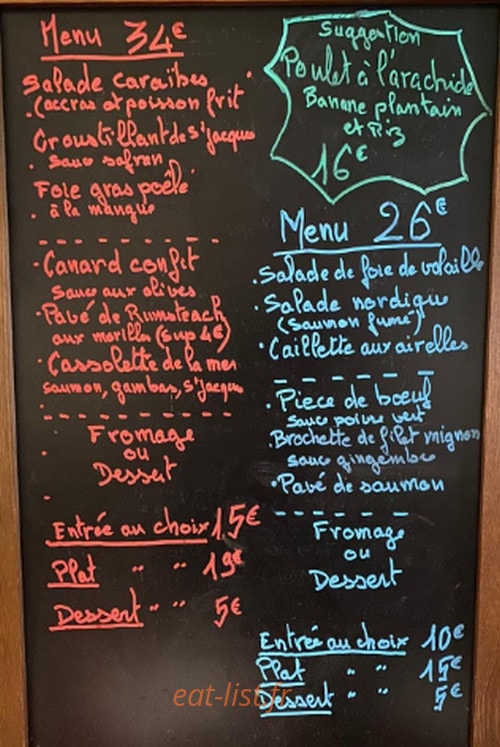 Menu 34€
Salade caraïbes
(accras et poisson frit
Croustillant de St Jacques
sauce safran
Foie gras poêlé
à la mangue
Canard confit
Sauce aux olives
Pavé de Rumsteack
aux morilles (sup 4€)
Cassolette de la mer
saumon, gambas, St Jacques
Fromage
ou
Dessert
Entrée au choix 15€
Plat " " 19€
Dessert " " 5€
Suggestion
Poulet à l'arachide
Banane plantain
et Riz
16€
Menu 26€
Salade de foie de volaille
Salade nordique
(Saumon fumé)
Caillette aux airelles
Piece de boeuf
sauce poivre vert
Brochette de filet mignon
sauce gingembre
Pavé de saumon
Fromage
ou
Dessert
Entrée au choix 10€
Plat " " 15€
Dessert " " 5€
eat-list.fr